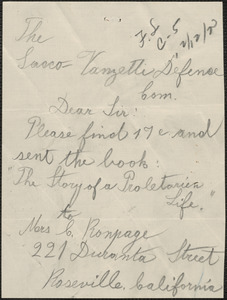 The
Sacco Vanzetti Defense
Com.
Dear Sir:
Please find 17¢ and
sent the book:
"The Story of a Proletarien
Life,"
to
Mrs C. Ronpage
221 Duranta Street
Roseville, California